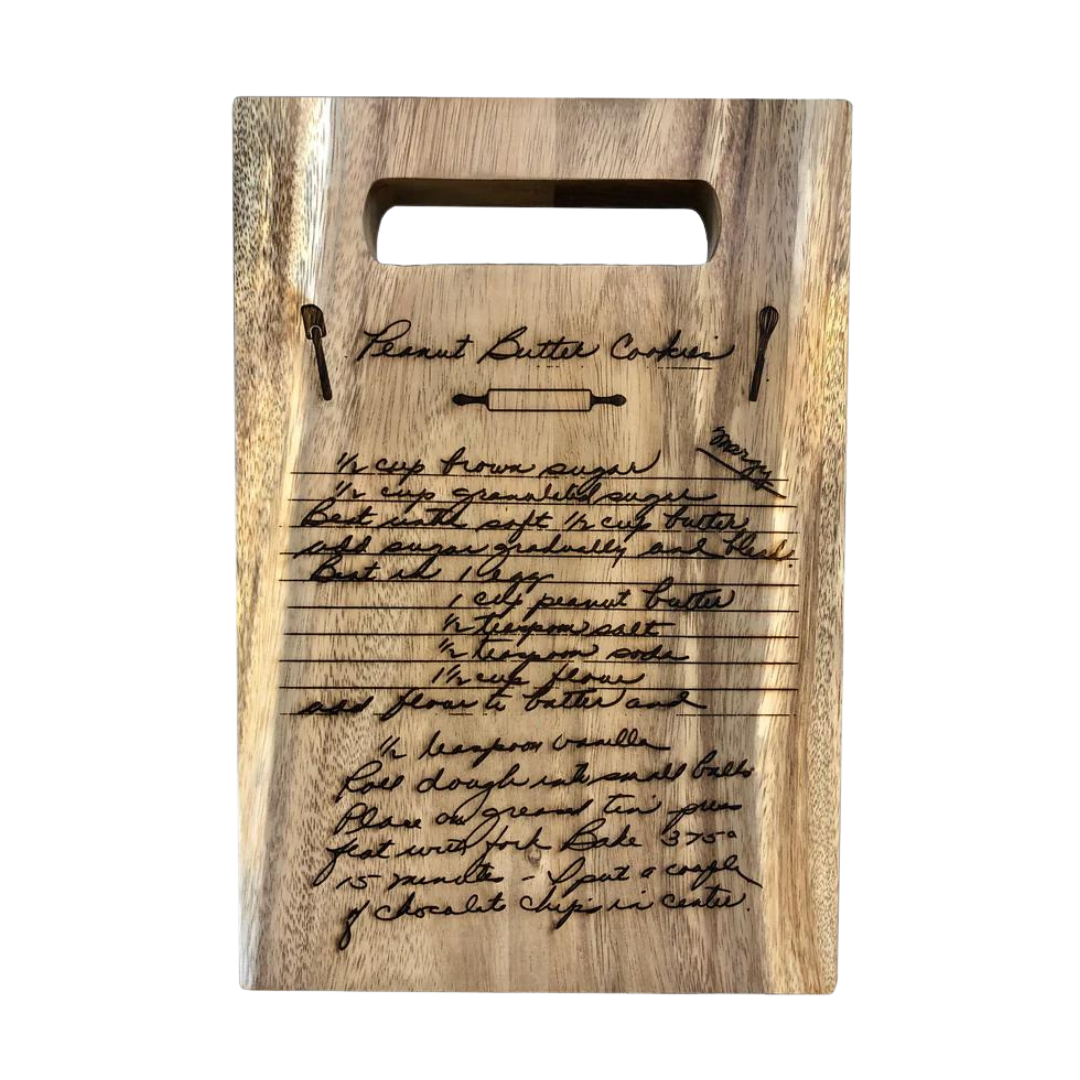 Peanut Butter Cookies
Margy
1/2 cup brown sugar
1/2 cup granulated sugar
Beat until soft 1/2 cup butter
add sugar gradually and blend.
Beat in 1 egg
1 cup peanut butter
1/2 teaspoon salt
1/2 teaspoon soda
1 1/2 cup flour
add flour to batter and
1/2 teaspoon vanilla
Roll dough into small balls
Place on greased tin press
flat with fork Bake 375°
15 minutes - I put a couple
of chocolate chips in center.